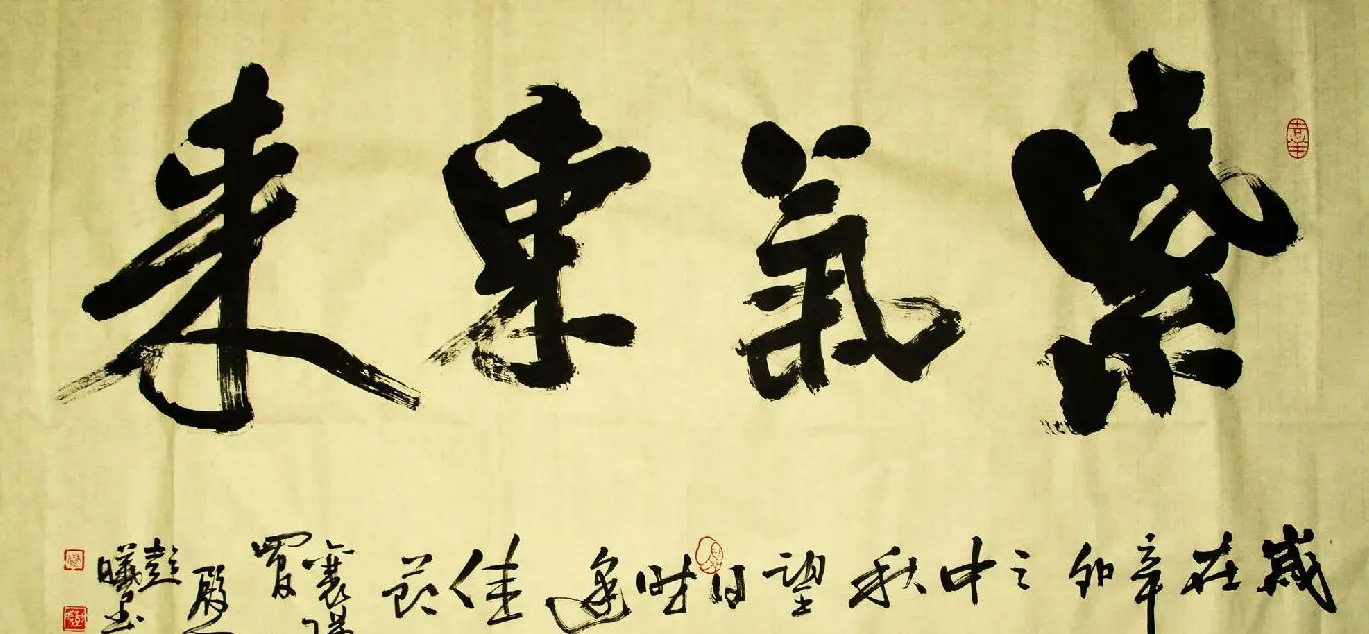 紫氣東來
歲在辛卯之中秋望日時逢佳節襄陽
彭曦書